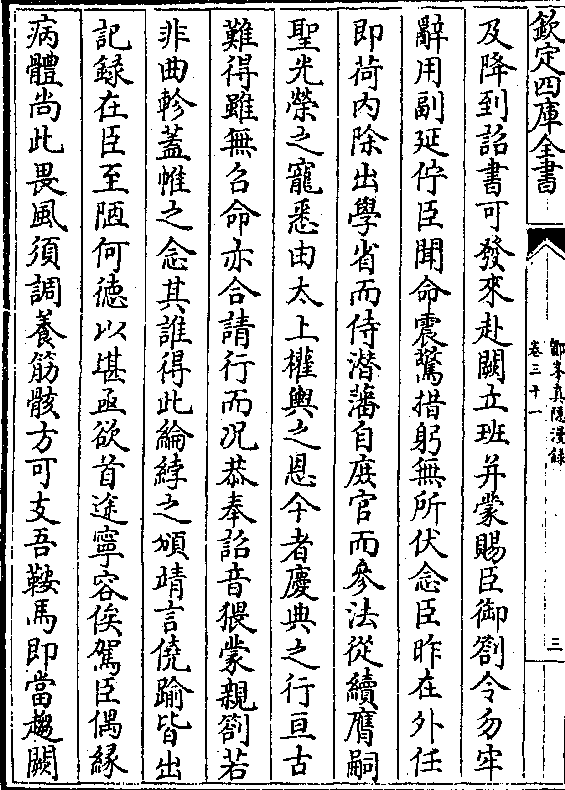 欽定四庫全書
鄮峯真隱漫録
卷三十一
三
及降到詔書可發來赴闕立班并蒙賜臣御劄令勿牢
辭用副延佇臣聞命震驚措躬無所伏念臣昨在外任
即荷内除出學省而侍潜藩自庶官而參法從續膺嗣
聖光榮之寵悉由太上權輿之恩今者慶典之行亘古
難得雖無名命亦合請行而况恭奉詔音猥蒙親劄若
非曲軫蓋帷之念其誰得此綸綍之頒靖言僥踰皆出
記録在臣至陋何德以堪亟欲首途寧容俟駕臣偶縁
病體尚此畏風須調養筋骸方可支吾鞍馬即當趨闕